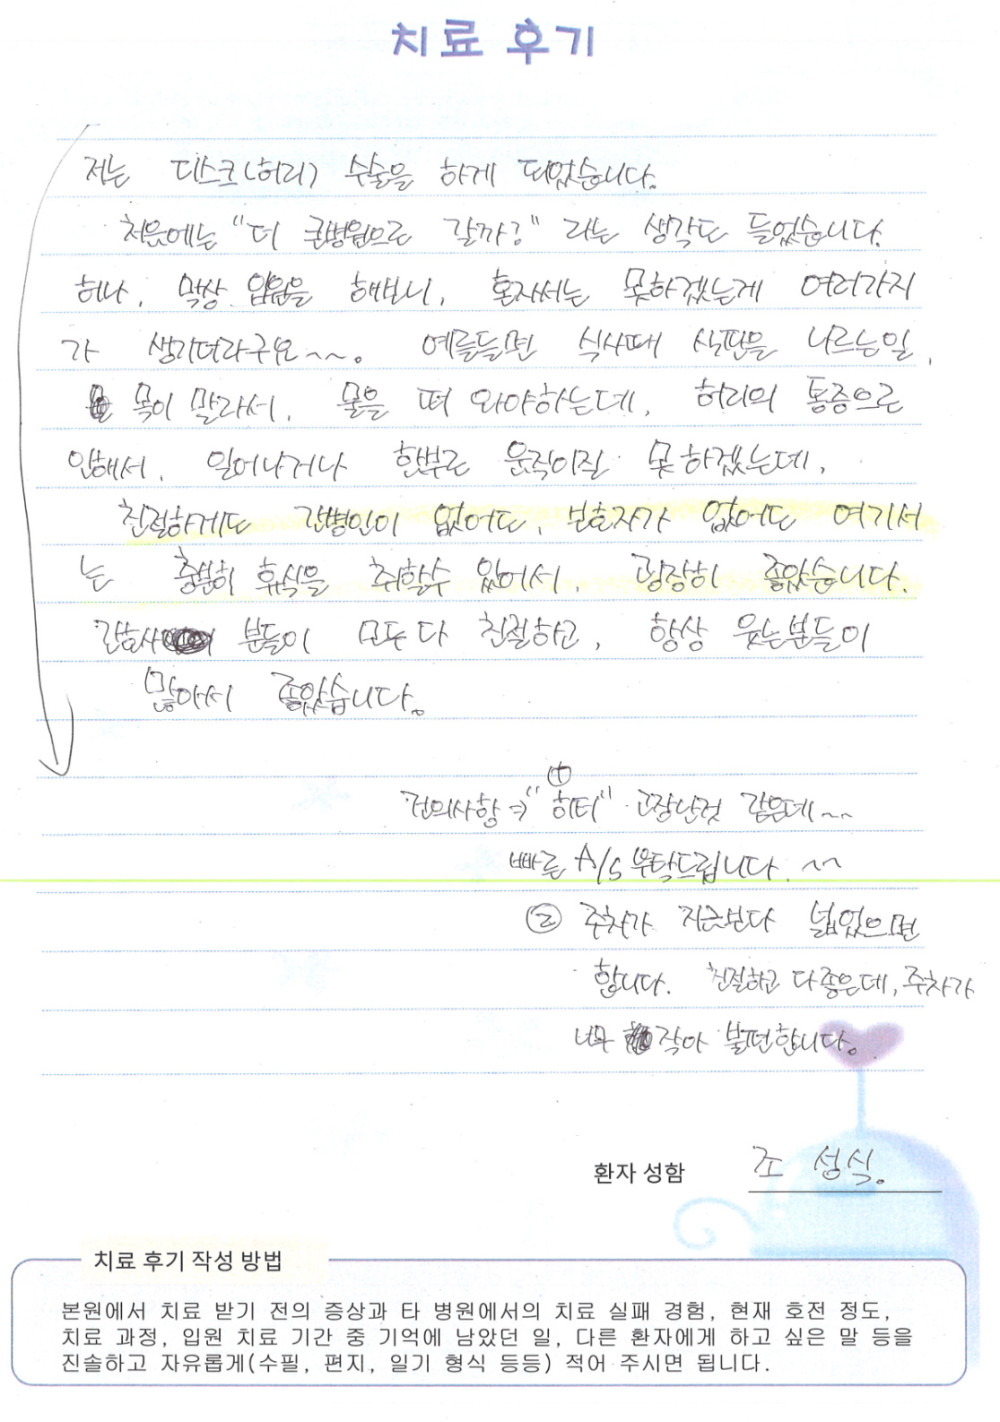 치료 후기
저는 디스크(허리) 수술을 하게 되었습니다.
처음에는 "더 큰병원으로 갈까?" 라는 생각도 들었습니다.
허나, 막상 입원을 해보니, 혼자서는 못하겠는게 여러가지
가 생기더라구요~~。 예를들면 식사때 식판을 나르는일,
목이 말라서, 물을 떠 와야하는데, 허리의 통증으로
인해서, 일어나거나 함부로 움직이질 못하겠는데,
친절하게도 간병인이 없어도, 보호자가 없어도 여기서
는 충분히 휴식을 취할수 있어서, 굉장히 좋았습니다.
간호사 분들이 모두다 친절하고, 항상 웃는분들이
많아서 좋았습니다.
건의사항 ⇒ ① "히터" 고장난것 같은데~~
빠른 A/S 부탁드립니다. ~~
② 주차가 지금보다 넓었으면
합니다. 친절하고 다좋은데, 주차가
너무 작아 불편합니다.
환자 성함 조 성식.
치료 후기 작성 방법
본원에서 치료 받기 전의 증상과 타 병원에서의 치료 실패 경험, 현재 호전 정도,
치료 과정, 입원 치료 기간 중 기억에 남았던 일, 다른 환자에게 하고 싶은 말 등을
진솔하고 자유롭게(수필, 편지, 일기 형식 등등) 적어 주시면 됩니다.